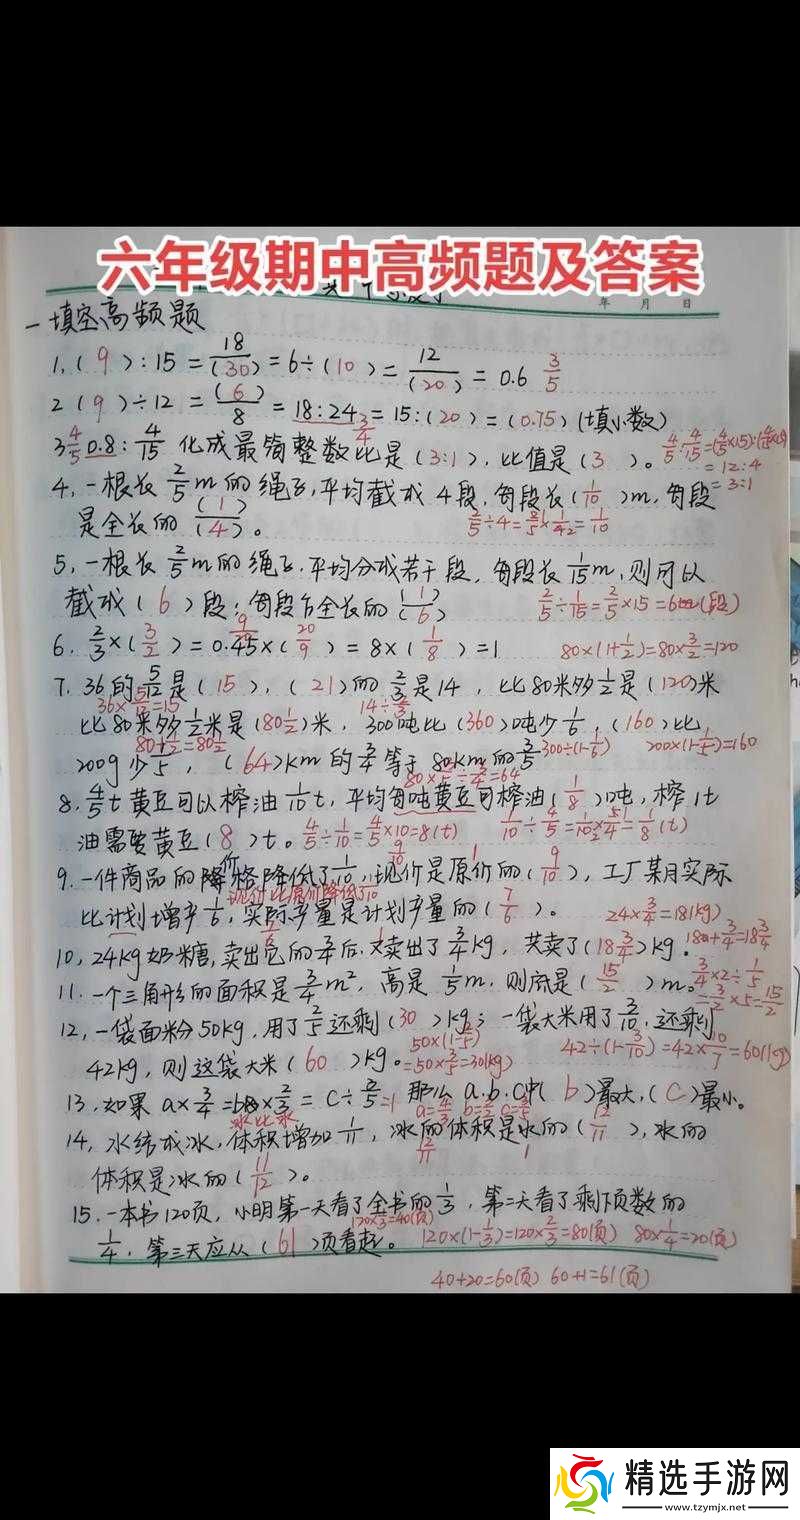 六年级期中高频题及答案
年 月 日
一填空高频题
1.( 9 ):15 = 18/(30) = 6÷(10) = 12/(20) = 0.6 3/5
2 ( 9 )÷12 = (6)/8 = 18:24 = 15:(20) = (0.75)(填小数)
3/4
3 4/5 0.8: 4/15 化成最简整数比是(3:1),比值是(3 )。 4/5:4/15=(4/5×15):(4/15×15)
=12:4
4,一根长2/5m的绳子,平均截成4段,每段长(1/10)m,每段 =3:1
是全长的(1)/(4)。 2/5÷4=2/5×1/4=1/10
5,一根长2/5m的绳子.平均分成若干段,每段长1/15m,则可以
截成( 6 )段;每段占全长的(1)/(6) 2/5÷1/15=2/5×15=6(段)
6. 2/3×(3/2)=0.45×(20/9)=8×(1/8)=1 80×(1+1/2)=80×3/2=120
7. 36的5/12是(15),(21)的2/3是14,比80米多1/2是(120)米
36×5/12=15 14÷2/3
比80米多1/2米是(80 1/2)米, 300吨比(360)吨少1/6,(160)比
80+1/2=80 1/2 300÷(1-1/6) 200×(1-1/5)=160
200g少1/5, (64)km的3/4等于80km的3/5
80×3/5÷3/4=64
8. 4/5t黄豆可以榨油1/10t,平均每吨黄豆可榨油(1/8)吨,榨1t
油需要黄豆(8)t。 4/5÷1/10=4/5×10=8(t) 1/10÷4/5=1/10×5/4=1/8(t)
9.一件商品的价格降低了1/10,现价是原价的(9/10),工厂某月实际
现价比原价降低了1/10
比计划增产1/6,实际产量是计划产量的(7/6)。 24×3/4=18(kg)
10,24kg奶糖,卖出它的3/4后.又卖出了3/4kg,共卖了(18 3/4)kg。 18+3/4=18 3/4
11.一个三角形的面积是3/4m²,高是1/5m,则底是(15/2)m。 3/4×2÷1/5
=3/2×5=15/2
12,一袋面粉50kg,用了2/5还剩(30)kg;一袋大米用了3/10,还剩
50×(1-2/5)
42kg,则这袋大米(60)kg。 =50×3/5=30(kg) 42÷(1-3/10)=42×10/7=60(kg)
13,如果a×3/4=b×2/3=c÷3/5=1 那么a.b.c中(b)最大,(c)最小。
a=4/3 b=3/2 c=3/5
冰比水
14,水结成冰,体积增加1/11,冰的体积是水的(12/11),水的
12/11 1
体积是冰的(11/12)。
15.一本书120页,小明第一天看了全书的1/3,第二天看了剩下页数的
120×1/3=40(页)
1/4,第三天应从(61)页看起。 120×(1-1/3)=120×2/3=80(页) 80×1/4=20(页)
40+20=60(页) 60+1=61(页)
精选手游网
www.tzymjx.net